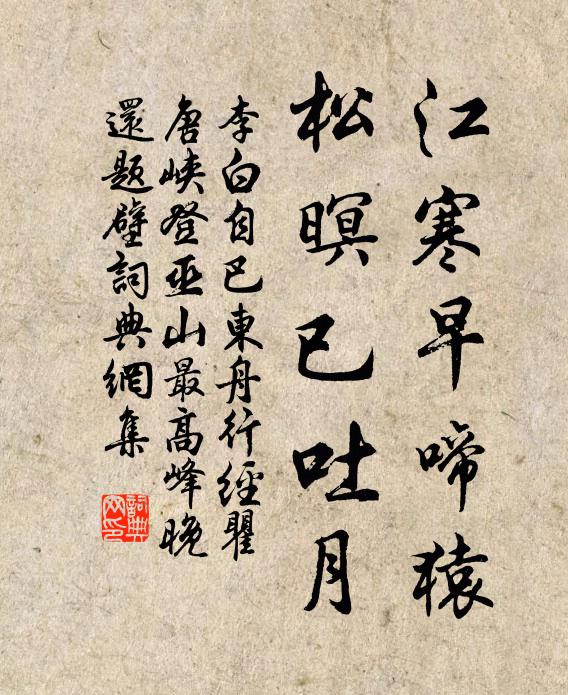 江寒早啼猿
松暝已吐月
李白自巴東舟行經瞿
唐峽登巫山最高峰晚
還題壁詞典網集
詞典
网印